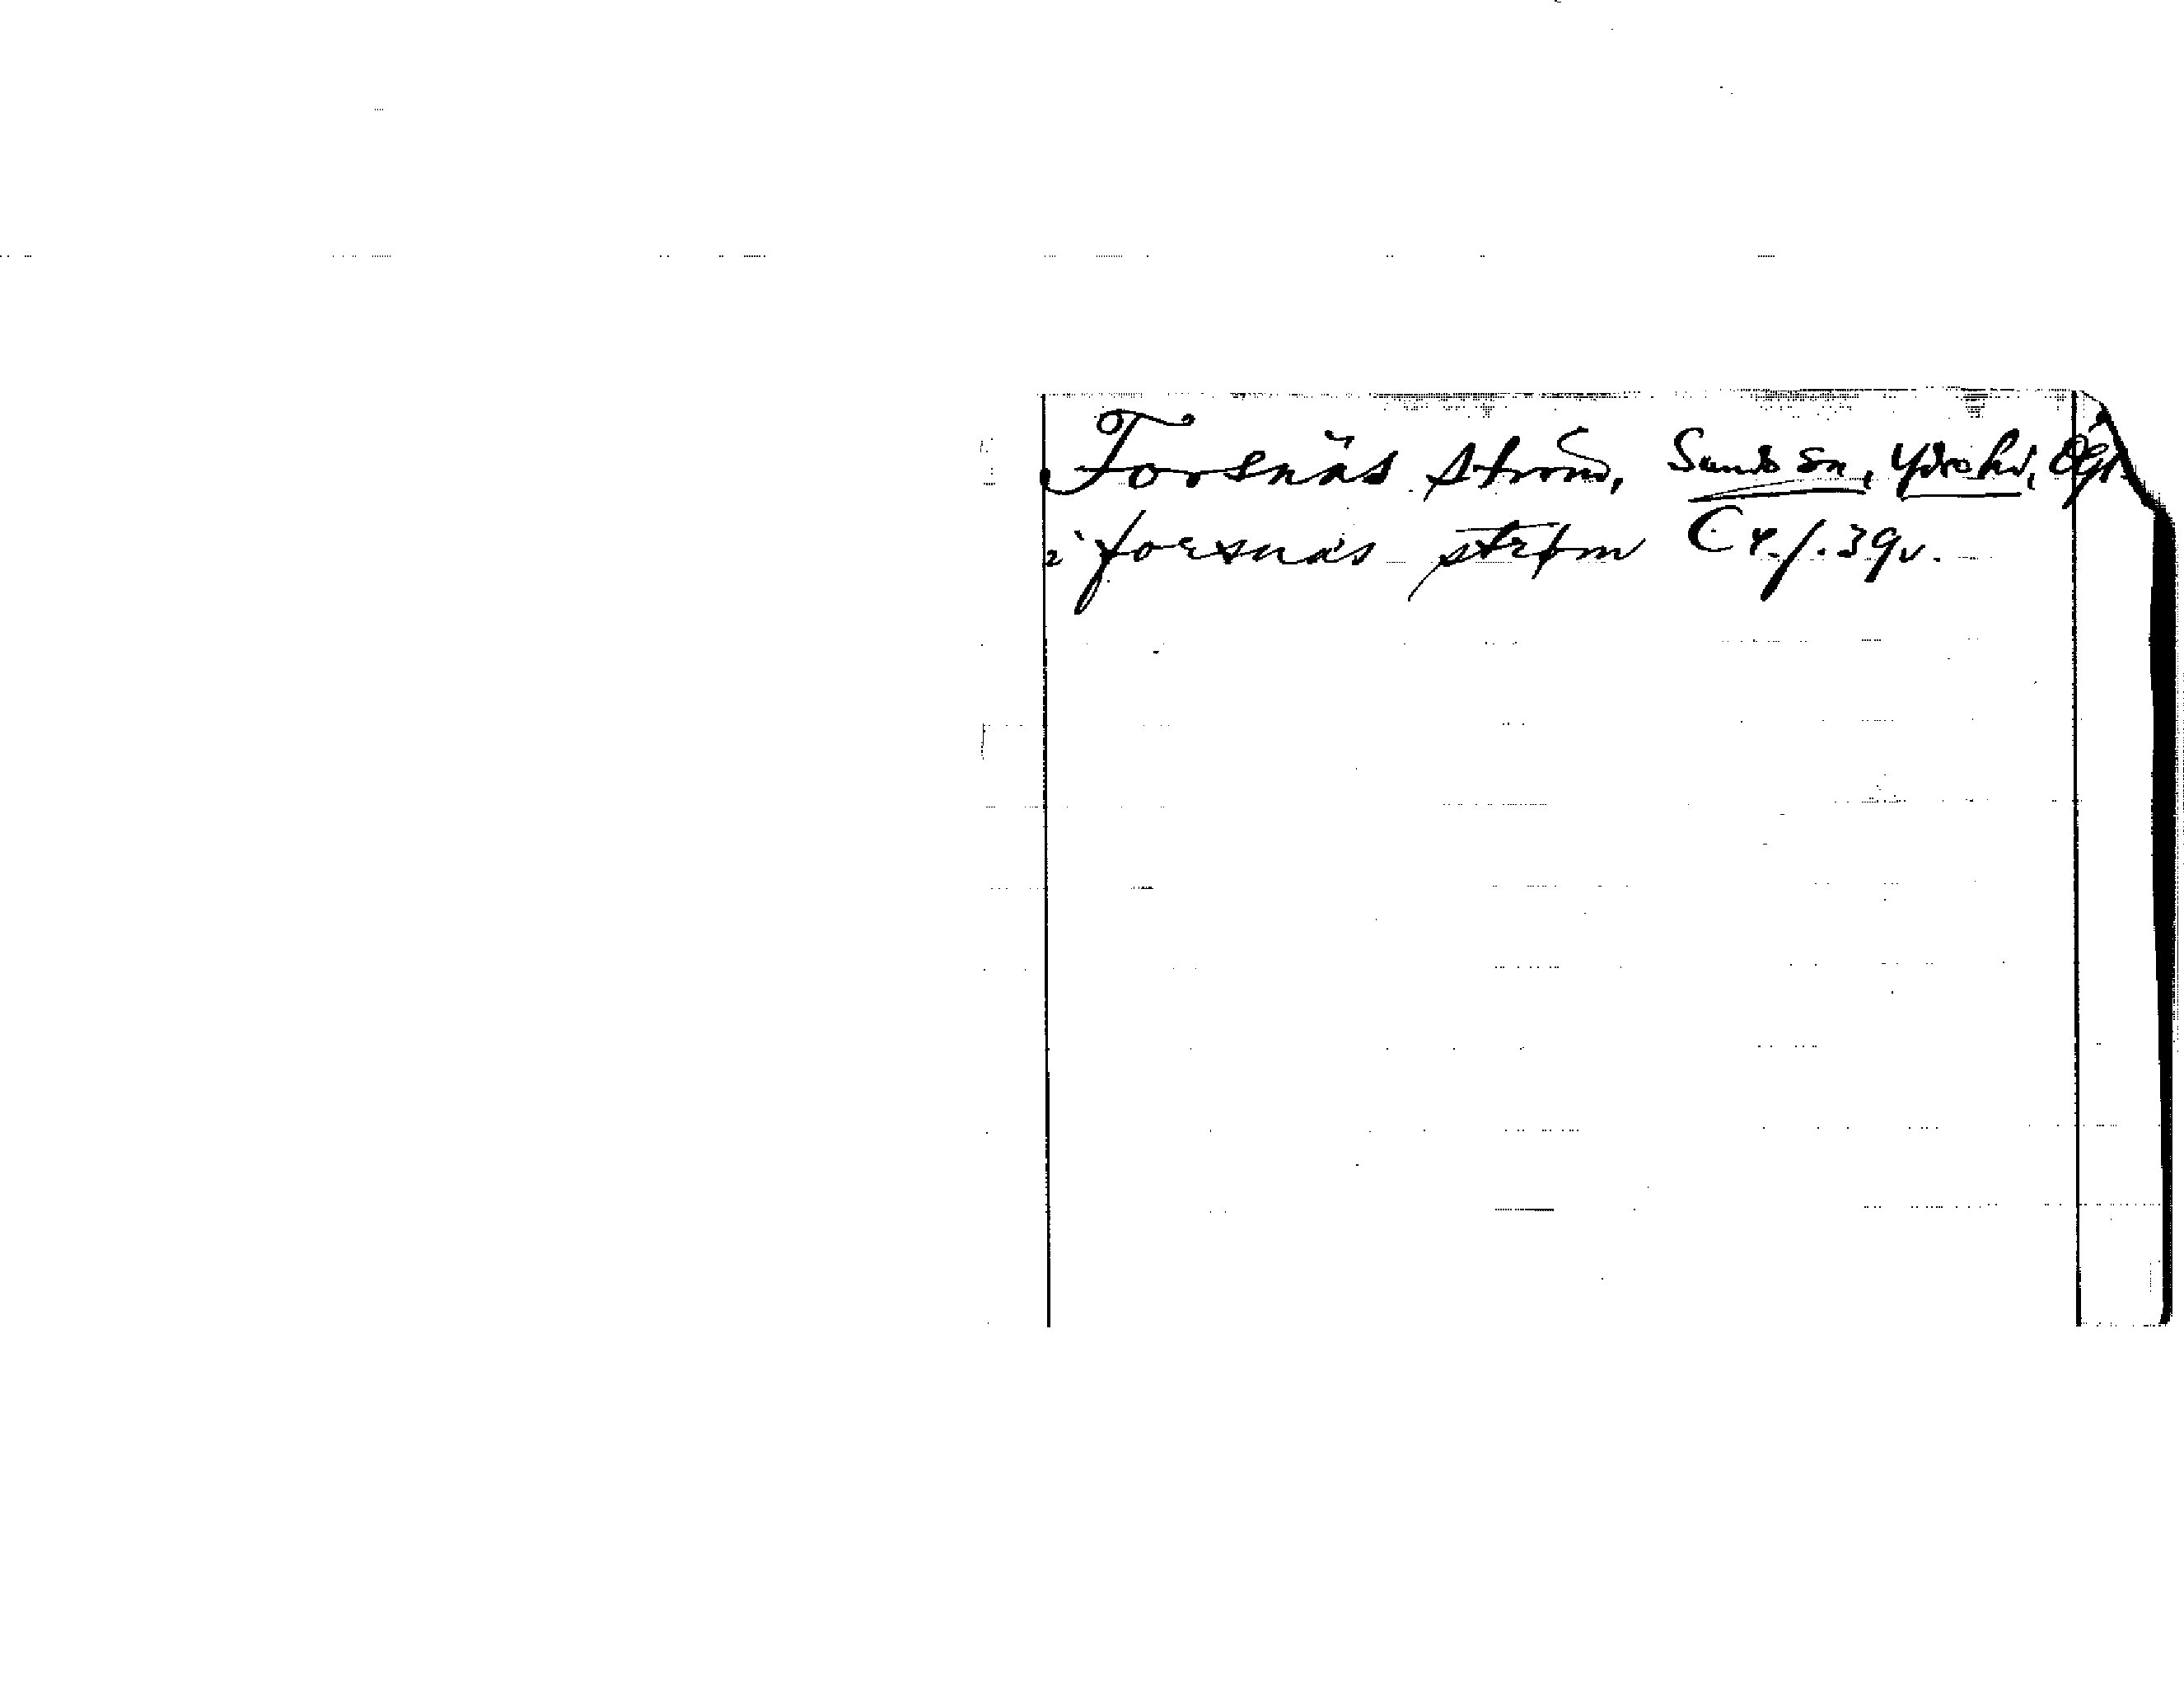 Forsnäs ström, Sunds sn, Ydre hd, Ögl.
i forsnäs strøm C 4. f. 39v.